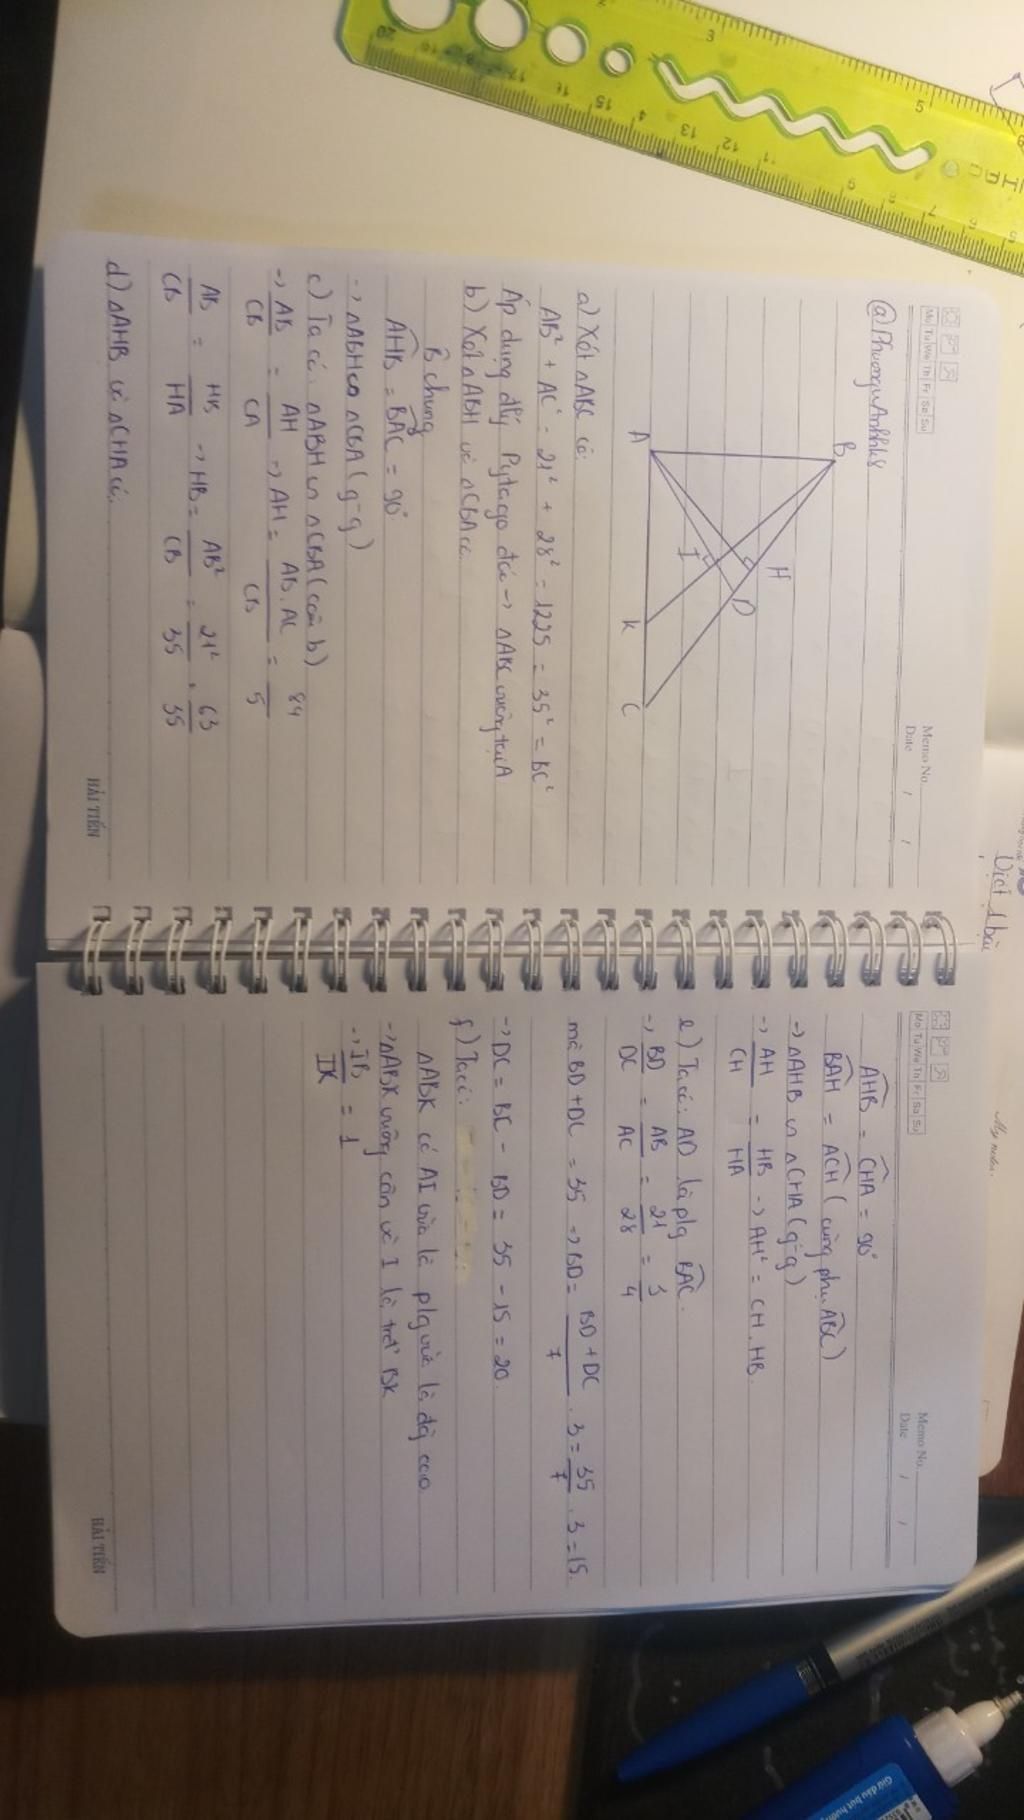 Memo No.
Date / /
Mo Tu We Th Fr Sa Su
@PhuonguAnhhk8
B
H
D
I
A
K
C
a) Xét △ABC có:
AB² + AC² = 21² + 28² = 1225 = 35² = BC²
Áp dụng đlý Pytago đảo -> △ABC vuông tại A
b) Xét △ABH và △CBA có:
B̂ chung
AHB = BAC = 90°
-> △ABH ∽ △CBA (g-g)
c) Ta có: △ABH ∽ △CBA (câu b)
-> AB/CB = AH/CA -> AH = AB.AC/CB = 84/5
AB/CB = HB/HA -> HB = AB²/CB = 21²/35 = 63/35
d) △AHB và △CHA có:
HẢI TIẾN
Memo No.
Date / /
Mo Tu We Th Fr Sa Su
AHB = CHA = 90°
BAH = ACH (cùng phụ ABC)
-> △AHB ∽ △CHA (g-g)
-> AH/CH = HB/HA -> AH² = CH.HB.
e) Ta có: AD là plg BAC.
-> BD/DC = AB/AC = 21/28 = 3/4
mà BD + DC = 35 -> BD = BD+DC/7 . 3 = 35/7 . 3 = 15.
-> DC = BC - BD = 35 - 15 = 20.
f) Ta có:
△ABK có AI vừa là plg vừa là đg cao
-> △ABK vuông cân và I là trđ BK
-> IB/IK = 1
HẢI TIẾN
Việt 1 bài
3
5
20
16
15
14
13
12
11
9
8
7